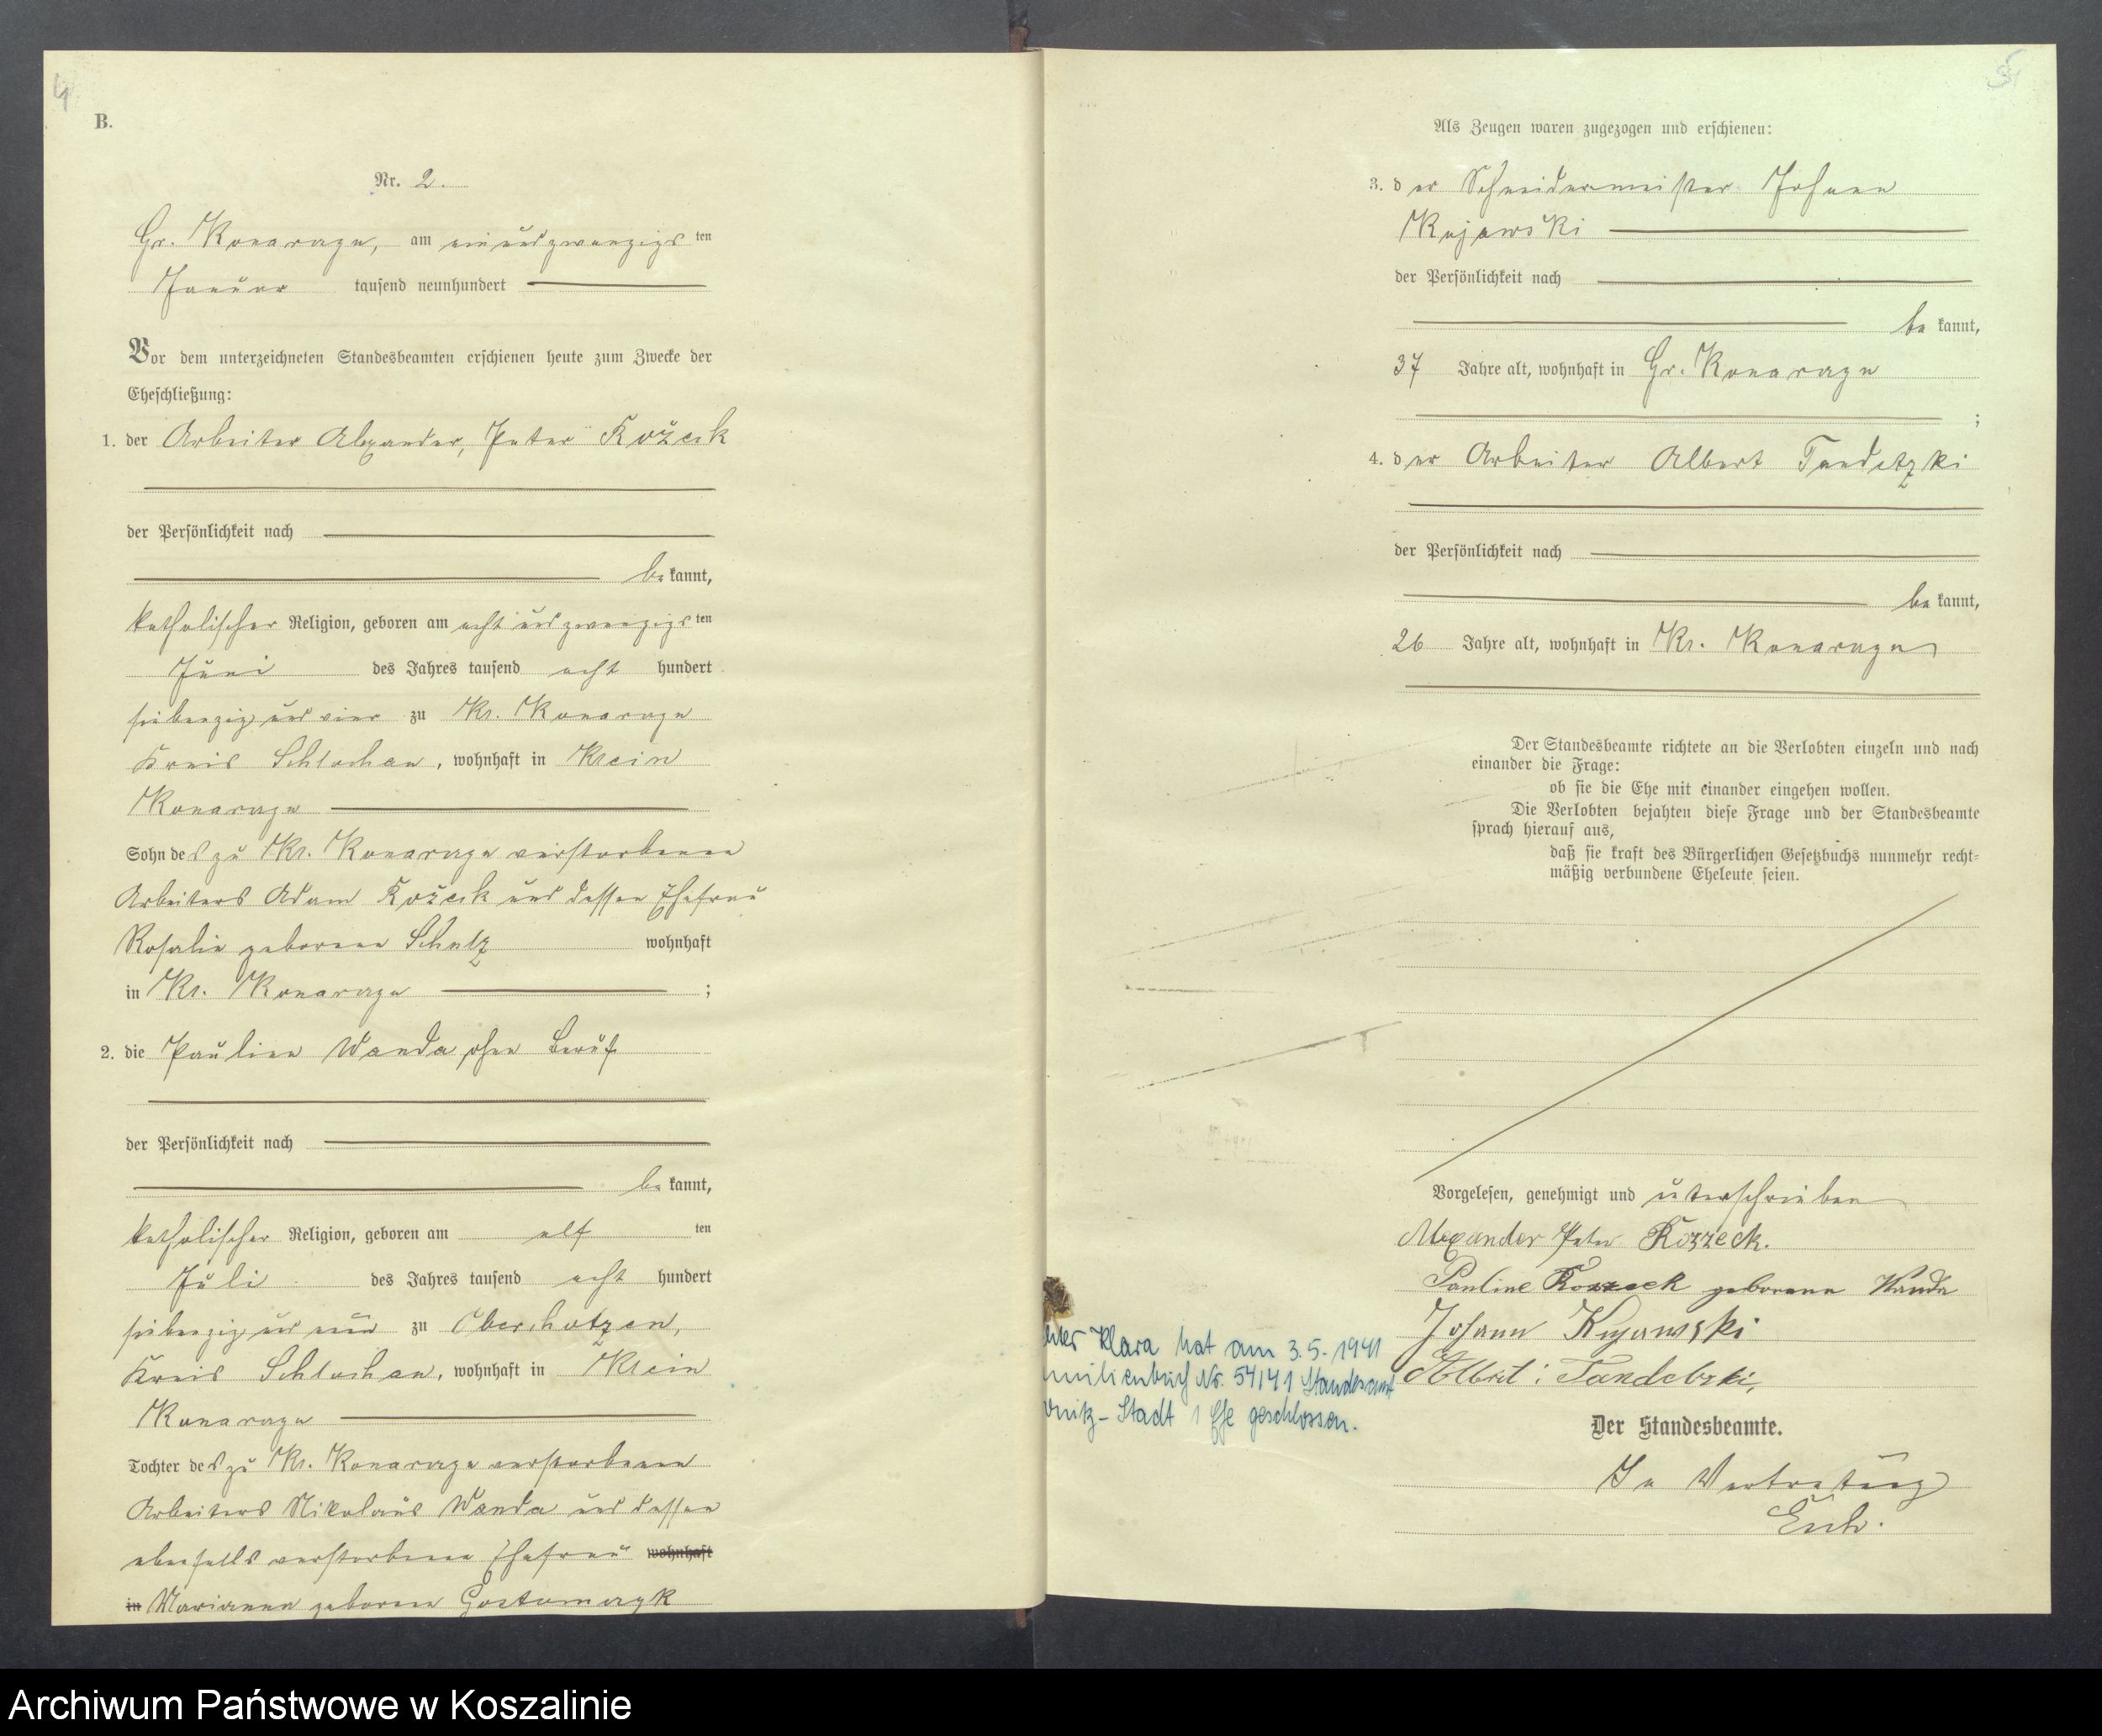 4
B.
Nr. 2.
Gr. Konarczyn, am einundzwanzigsten
Januar tausend neunhundert
Vor dem unterzeichneten Standesbeamten erschienen heute zum Zwecke der
Eheschließung:
1. der Arbeiter Alexander, Peter Kožeck
der Persönlichkeit nach
be kannt,
katholischer Religion, geboren am acht und zwanzigsten
Juni des Jahres tausend acht hundert
siebenzig und vier zu Kl. Konarczyn
Kreis Schlochau, wohnhaft in Klein
Konarczyn
Sohn des zu Kl. Konarczyn verstorbenen
Arbeiters Adam Kožeck und dessen Ehefrau
Rosalie geborene Schulz wohnhaft
in Kl. Konarczyn ;
2. die Pauline Wanda, ohne Beruf
der Persönlichkeit nach
be kannt,
katholischer Religion, geboren am elf ten
Juli des Jahres tausend acht hundert
siebenzig und neun zu Oberhutzen,
Kreis Schlochau, wohnhaft in Klein
Konarczyn
Tochter des zu Kl. Konarczyn verstorbenen
Arbeiters Nikolaus Wanda und dessen
ebenfalls verstorbene Ehefrau wohnhaft
in Marianna geborene Gostomczyk
5
Als Zeugen waren zugezogen und erschienen:
3. der Schneidermeister Johann
Kujawski
der Persönlichkeit nach
be kannt,
37 Jahre alt, wohnhaft in Gr. Konarczyn
;
4. der Arbeiter Albert Tandetzki
der Persönlichkeit nach
be kannt,
26 Jahre alt, wohnhaft in Kl. Konarczyn
Der Standesbeamte richtete an die Verlobten einzeln und nach
einander die Frage:
ob sie die Ehe mit einander eingehen wollen.
Die Verlobten bejahten diese Frage und der Standesbeamte
sprach hierauf aus,
daß sie kraft des Bürgerlichen Gesetzbuchs nunmehr recht-
mäßig verbundene Eheleute seien.
Vorgelesen, genehmigt und unterschrieben
Alexander Peter Kozzeck.
Pauline Kozzeck geborene Wanda
Johann Kujawski
Albert Tandetzki,
Klara hat am 3.5.1941
Nr. 54/41 Standesamt
-Stadt 1 Ehe geschlossen.
Der Standesbeamte.
In Vertretung
Archiwum Państwowe w Koszalinie